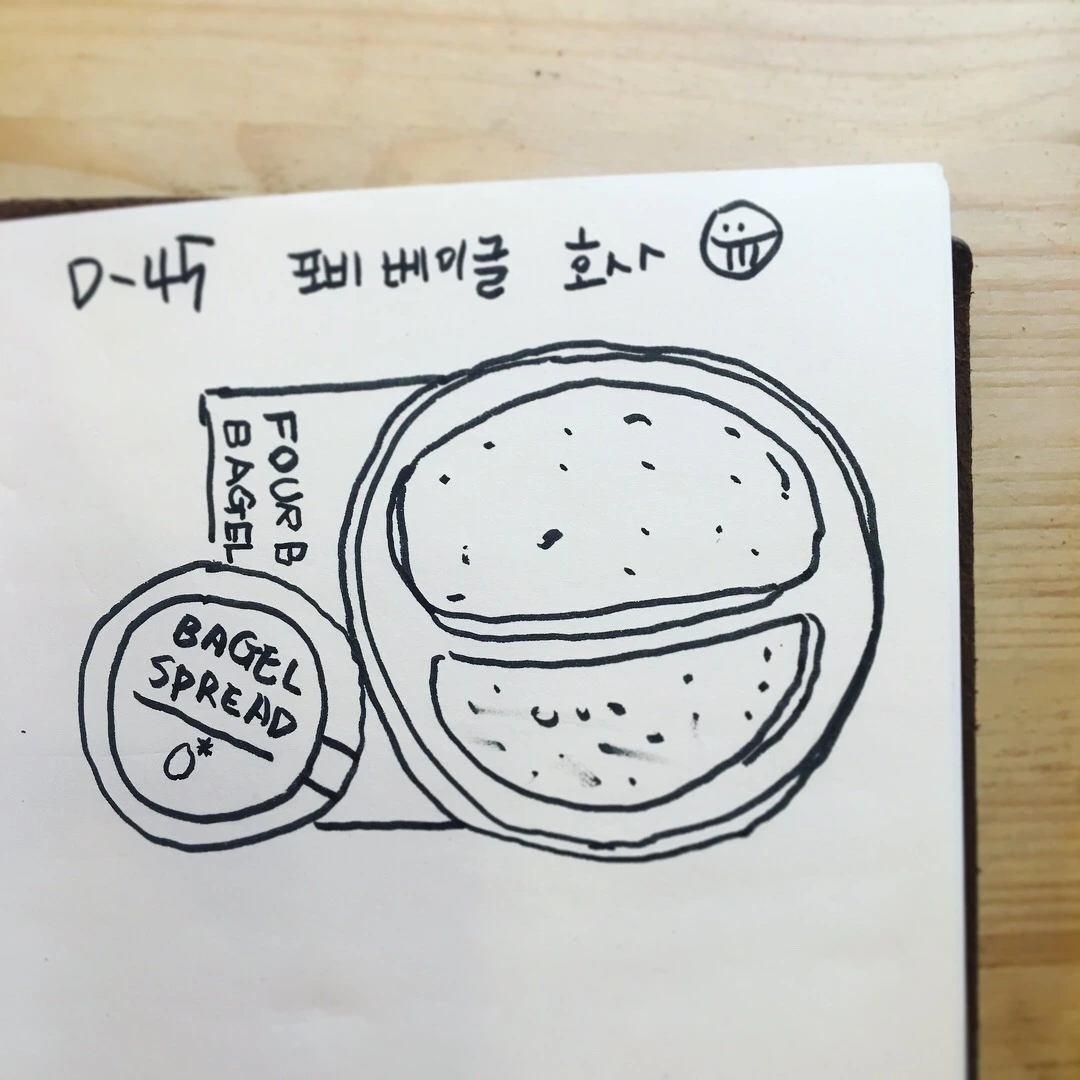 D-45 포비 베이글 호사
FOUR B
BAGEL
BAGEL
SPREAD